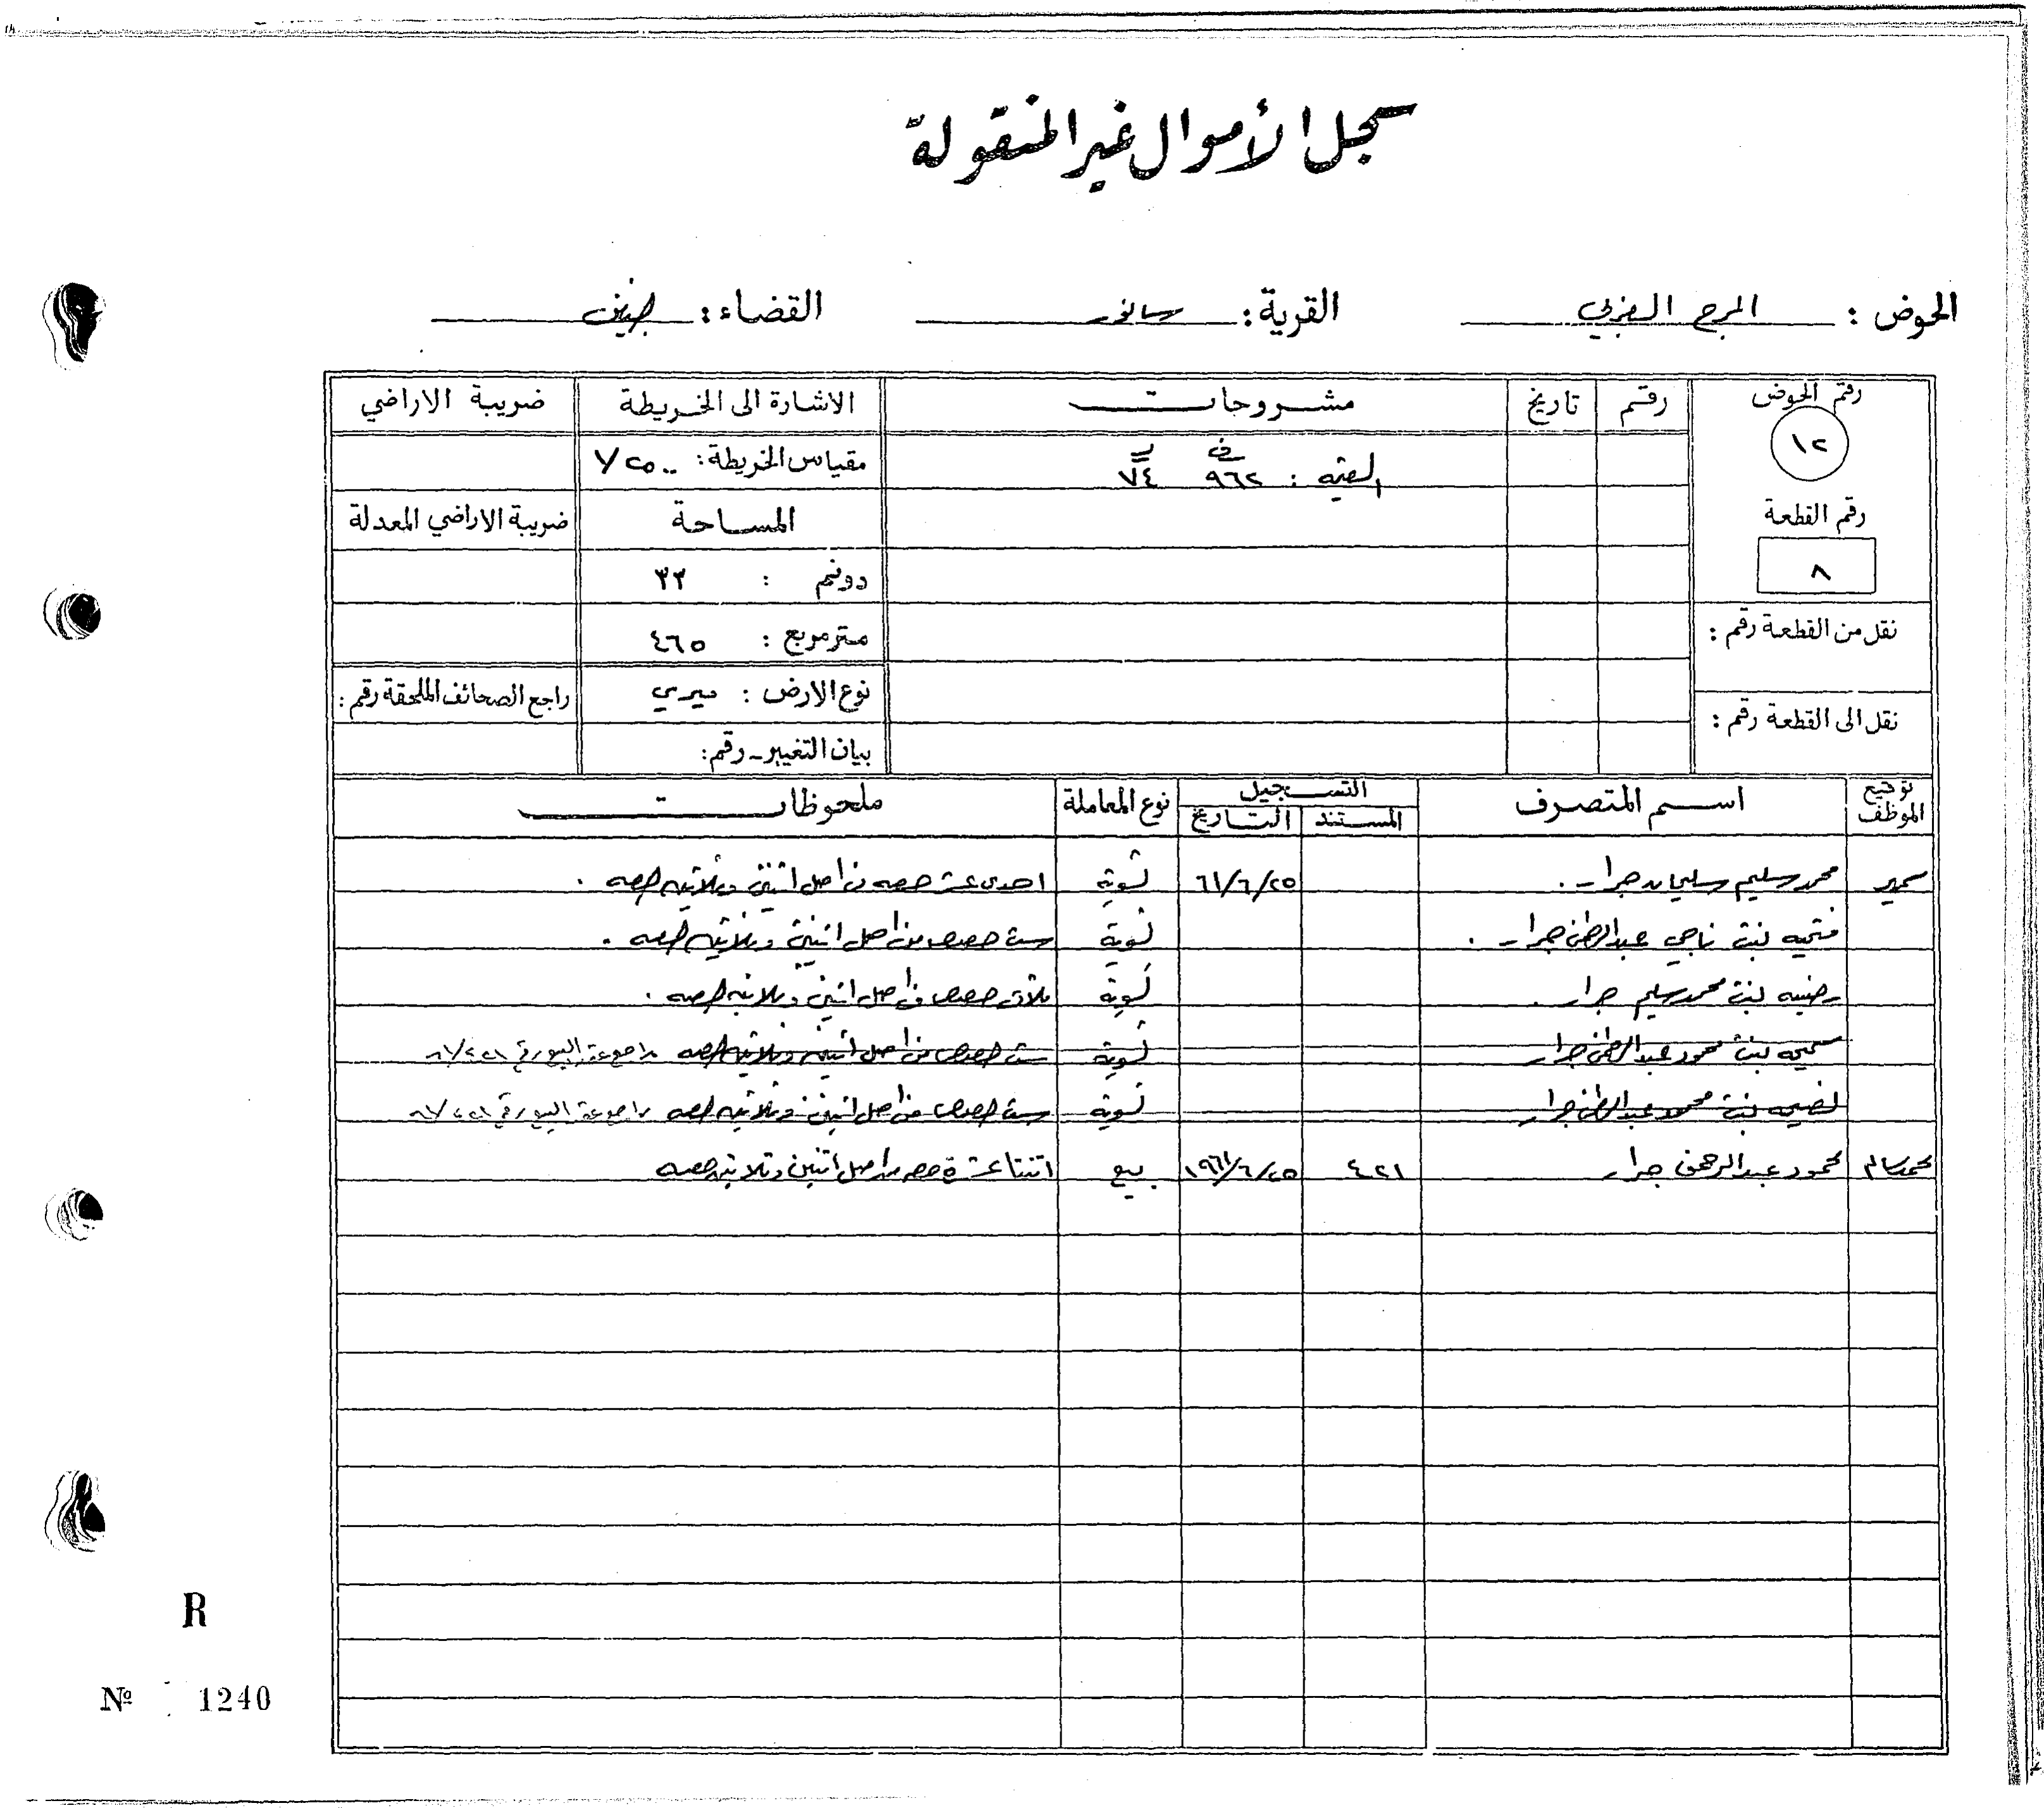 سجل الأموال غير المنقولة
الحوض : المرج الغربي القرية : سانور القضاء : جنين
رقم الحوض رقم تاريخ مشروحات الاشارة الى الخريطة ضريبة الاراضي
١٢ القيمه : ٩٦٢ ٧٤ مقياس الخريطة : ١/٢٥٠٠
رقم القطعة المساحة ضريبة الاراضي المعدلة
٨ دونم : ٣٣
نقل من القطعة رقم : متر مربع : ٤٦٥
نوع الارض : ميري راجع الصحائف الملحقة رقم :
نقل الى القطعة رقم : بيان التغيير - رقم :
توقيع الموظف اسم المتصرف التسجيل نوع المعاملة ملحوظات
المستند التاريخ
سمير محمد سليم سليمان جرار . ٦١/٦/٢٥ تسوية احدى عشر حصه من اصل اثنين وثلاثين حصه .
فتحيه بنت ناجي عبد الرحمن جرار . تسوية ست حصص من اصل اثنين وثلاثين حصه .
رضيه بنت محمد سليم جرار . تسوية ثلاث حصص من اصل اثنين وثلاثين حصه .
سميحه بنت محمود عبد الرحمن جرار تسوية ست حصص من اصل اثنين وثلاثين حصه ٦١/٤٢١
بنت محمود عبد الرحمن جرار تسوية ست حصص من اصل اثنين وثلاثين حصه ٦١/٤٢١
محمد سالم محمود عبد الرحمن جرار ٤٢١ ١٩٦١/٦/٢٥ بيع اثنتا عشرة حصه من اصل اثنين وثلاثين حصه
R
Nº 1240